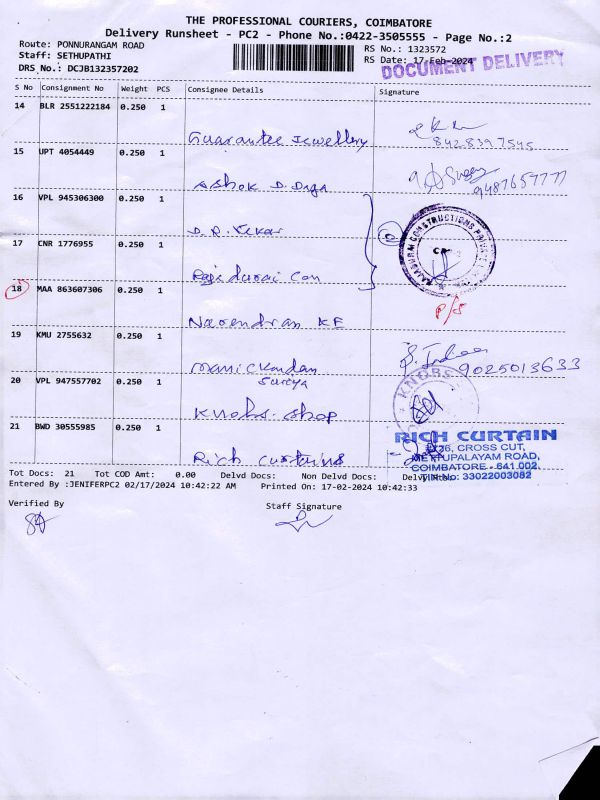 THE PROFESSIONAL COURIERS, COIMBATORE
Delivery Runsheet - PC2 - Phone No.:0422-3505555 - Page No.:2
Route: PONNURANGAM ROAD
Staff: SETHUPATHI
DRS No.: DCJB132357202
RS No.: 1323572
RS Date: 17-Feb-2024
DOCUMENT DELIVERY
S No Consignment No Weight PCS Consignee Details Signature
14 BLR 2551222184 0.250 1
Guarantee Jewellery
842 839 7545
15 UPT 4054449 0.250 1
Ashok D. Daga
9487657777
16 VPL 945306300 0.250 1
D.R. Sekar
17 CNR 1776955 0.250 1
Rajadurai Con
18 MAA 863607306 0.250 1
P/S
Narendran KE
19 KMU 2755632 0.250 1
Manickandan
Surya
9025013633
20 VPL 947557702 0.250 1
Knobs-shop
KNOBS
21 BWD 30555985 0.250 1
Rich Curtains
RICH CURTAIN
CROSS CUT,
METTUPALAYAM ROAD,
COIMBATORE - 641 002.
TIN No: 33022003082
Tot Docs: 21 Tot COD Amt: 0.00 Delvd Docs: Non Delvd Docs:
Entered By :JENIFERPC2 02/17/2024 10:42:22 AM Printed On: 17-02-2024 10:42:33
Verified By Staff Signature